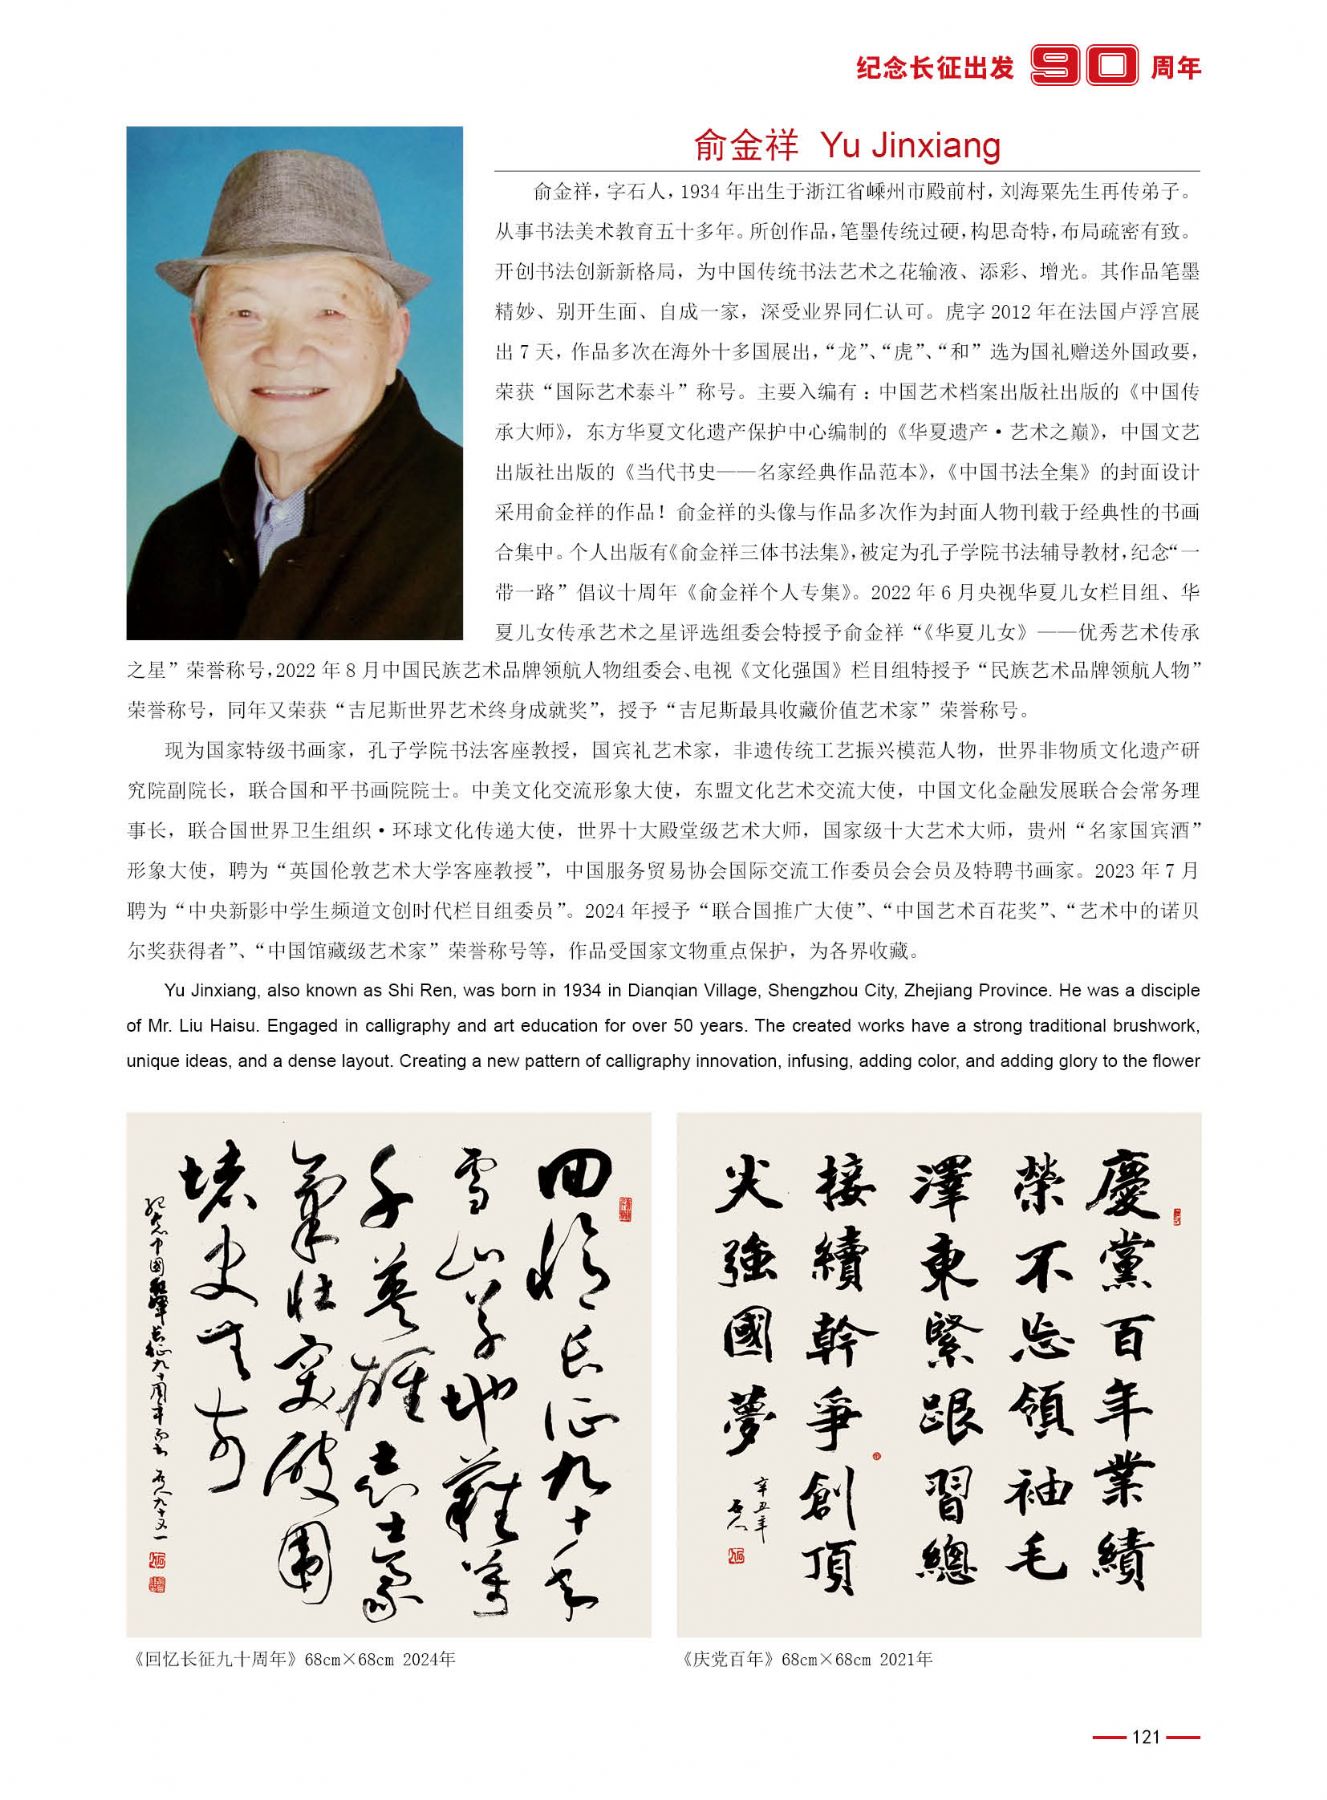 纪念长征出发90周年
俞金祥 Yu Jinxiang
俞金祥，字石人，1934年出生于浙江省嵊州市殿前村，刘海粟先生再传弟子。
从事书法美术教育五十多年。所创作品，笔墨传统过硬，构思奇特，布局疏密有致。
开创书法创新新格局，为中国传统书法艺术之花输液、添彩、增光。其作品笔墨
精妙、别开生面、自成一家，深受业界同仁认可。虎字2012年在法国卢浮宫展
出7天，作品多次在海外十多国展出，“龙”、“虎”、“和”选为国礼赠送外国政要，
荣获“国际艺术泰斗”称号。主要入编有：中国艺术档案出版社出版的《中国传
承大师》，东方华夏文化遗产保护中心编制的《华夏遗产·艺术之巅》，中国文艺
出版社出版的《当代书史——名家经典作品范本》，《中国书法全集》的封面设计
采用俞金祥的作品！俞金祥的头像与作品多次作为封面人物刊载于经典性的书画
合集中。个人出版有《俞金祥三体书法集》，被定为孔子学院书法辅导教材，纪念“一
带一路”倡议十周年《俞金祥个人专集》。2022年6月央视华夏儿女栏目组、华
夏儿女传承艺术之星评选组委会特授予俞金祥“《华夏儿女》——优秀艺术传承
之星”荣誉称号，2022年8月中国民族艺术品牌领航人物组委会、电视《文化强国》栏目组特授予“民族艺术品牌领航人物”
荣誉称号，同年又荣获“吉尼斯世界艺术终身成就奖”，授予“吉尼斯最具收藏价值艺术家”荣誉称号。
现为国家特级书画家，孔子学院书法客座教授，国宾礼艺术家，非遗传统工艺振兴模范人物，世界非物质文化遗产研
究院副院长，联合国和平书画院院士。中美文化交流形象大使，东盟文化艺术交流大使，中国文化金融发展联合会常务理
事长，联合国世界卫生组织·环球文化传递大使，世界十大殿堂级艺术大师，国家级十大艺术大师，贵州“名家国宾酒”
形象大使，聘为“英国伦敦艺术大学客座教授”，中国服务贸易协会国际交流工作委员会会员及特聘书画家。2023年7月
聘为“中央新影中学生频道文创时代栏目组委员”。2024年授予“联合国推广大使”、“中国艺术百花奖”、“艺术中的诺贝
尔奖获得者”、“中国馆藏级艺术家”荣誉称号等，作品受国家文物重点保护，为各界收藏。
Yu Jinxiang, also known as Shi Ren, was born in 1934 in Dianqian Village, Shengzhou City, Zhejiang Province. He was a disciple
of Mr. Liu Haisu. Engaged in calligraphy and art education for over 50 years. The created works have a strong traditional brushwork,
unique ideas, and a dense layout. Creating a new pattern of calligraphy innovation, infusing, adding color, and adding glory to the flower
回忆长征九十年
雪山草地难万
千英雄志士豪
气壮突破围
堵史无前
纪念中国红军长征九十周年 石人九十又一
慶黨百年業績
榮不忘領袖毛
澤東緊跟習總
接續幹爭創頂
尖強國夢
辛丑年
石人
《回忆长征九十周年》68cm×68cm 2024年
《庆党百年》68cm×68cm 2021年
121